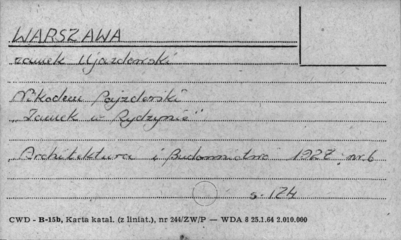 WARSZAWA
zamek Ujazdowski
Nikodem Pajzderski
"Zamek w Rydzynie"
"Architektura i Budownictwo 1928 nr. 6
s. 124
CWD - B-15b, Karta katal. (z liniat.), nr 244/ZW/P — WDA 8 25.1.64 2.010.000